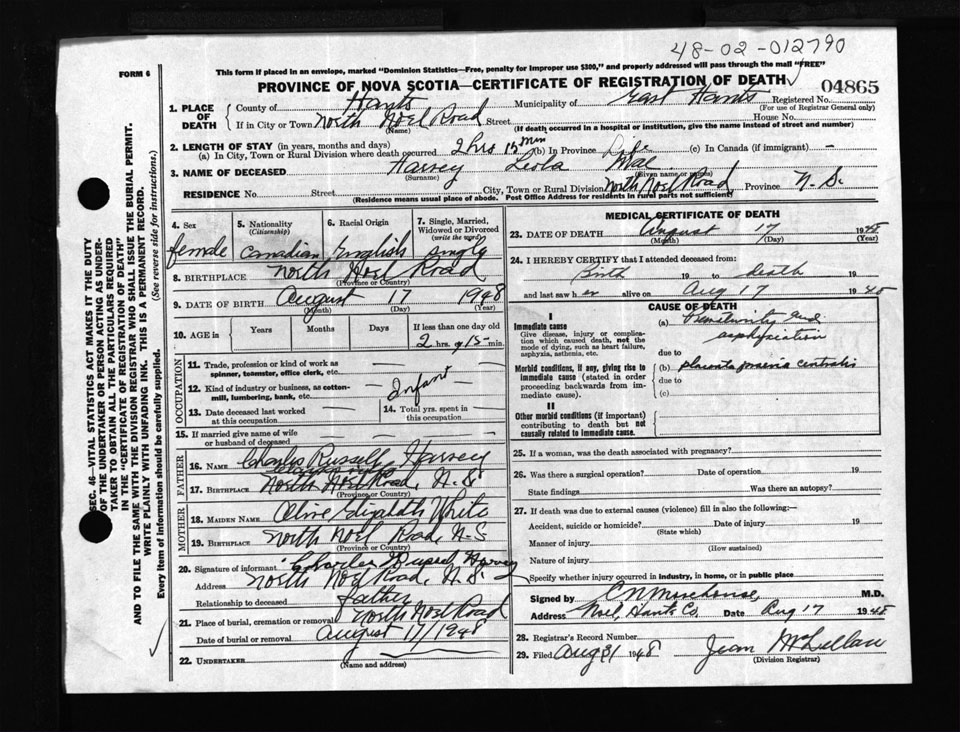 48-02-012790
FORM 6
This form if placed in an envelope, marked "Dominion Statistics—Free, penalty for improper use $300," and properly addressed will pass through the mail "FREE"
PROVINCE OF NOVA SCOTIA—CERTIFICATE OF REGISTRATION OF DEATH
04865
1. PLACE OF DEATH
County of Hants Municipality of East Hants Registered No.
(For use of Registrar General only)
If in City or Town North Noel Road Street House No.
(Name) (If death occurred in a hospital or institution, give the name instead of street and number)
2. LENGTH OF STAY (in years, months and days)
(a) In City, Town or Rural Division where death occurred 2 hrs 15 min (b) In Province Life (c) In Canada (if immigrant) —
3. NAME OF DECEASED Harvey Leola Mae
(Surname) (Given name or names)
RESIDENCE No. Street City, Town or Rural Division North Noel Road Province N.S.
(Residence means usual place of abode. Post Office Address for residents in rural parts not sufficient)
4. Sex
female
5. Nationality
(Citizenship)
Canadian
6. Racial Origin
English
7. Single, Married, Widowed or Divorced
(write the word)
single
8. BIRTHPLACE North Noel Road
(Province or Country)
9. DATE OF BIRTH August 17 1948
(Month) (Day) (Year)
10. AGE in Years Months Days If less than one day old
2 hrs. 15 min.
OCCUPATION
11. Trade, profession or kind of work as spinner, teamster, office clerk, etc.
12. Kind of industry or business, as cotton-mill, lumbering, bank, etc. Infant
13. Date deceased last worked at this occupation
14. Total yrs. spent in this occupation
15. If married give name of wife or husband of deceased
FATHER
16. NAME Charles Russell Harvey
17. BIRTHPLACE North Noel Road, N.S.
(Province or Country)
MOTHER
18. MAIDEN NAME Olive Elizabeth White
19. BIRTHPLACE North Noel Road, N.S
(Province or Country)
20. Signature of informant Charles Russell Harvey
Address North Noel Road, N.S.
Relationship to deceased father
21. Place of burial, cremation or removal North Noel Road
Date of burial or removal August 17/1948
22. UNDERTAKER
(Name and address)
MEDICAL CERTIFICATE OF DEATH
23. DATE OF DEATH August 17 1948
(Month) (Day) (Year)
24. I HEREBY CERTIFY that I attended deceased from:
Birth 19 to death 19
and last saw her alive on Aug 17 1948
CAUSE OF DEATH
I
Immediate cause
Give disease, injury or complication which caused death, not the mode of dying, such as heart failure, asphyxia, asthenia, etc.
(a) Prematurity and asphyxiation
due to
Morbid conditions, if any, giving rise to immediate cause (stated in order proceeding backwards from immediate cause).
(b) placenta praevia centralis
due to
(c)
II
Other morbid conditions (if important) contributing to death but not causally related to immediate cause.
25. If a woman, was the death associated with pregnancy?
26. Was there a surgical operation? Date of operation 19
State findings Was there an autopsy?
27. If death was due to external causes (violence) fill in also the following:—
Accident, suicide or homicide? Date of injury 19
(State which)
Manner of injury
(How sustained)
Nature of injury
Specify whether injury occurred in industry, in home, or in public place
Signed by C N Morehouse, M.D.
Address Noel, Hants Co. Date Aug 17 1948
28. Registrar's Record Number
29. Filed Aug 31 1948 Jean McLellan
(Division Registrar)
SEC. 46—VITAL STATISTICS ACT MAKES IT THE DUTY
OF THE UNDERTAKER OR PERSON ACTING AS UNDER-
TAKER TO OBTAIN ALL THE PARTICULARS REQUIRED
IN THE "CERTIFICATE OF REGISTRATION OF DEATH"
AND TO FILE THE SAME WITH THE DIVISION REGISTRAR WHO SHALL ISSUE THE BURIAL PERMIT.
WRITE PLAINLY WITH UNFADING INK. THIS IS A PERMANENT RECORD.
Every item of information should be carefully supplied. (See reverse side for instructions.)